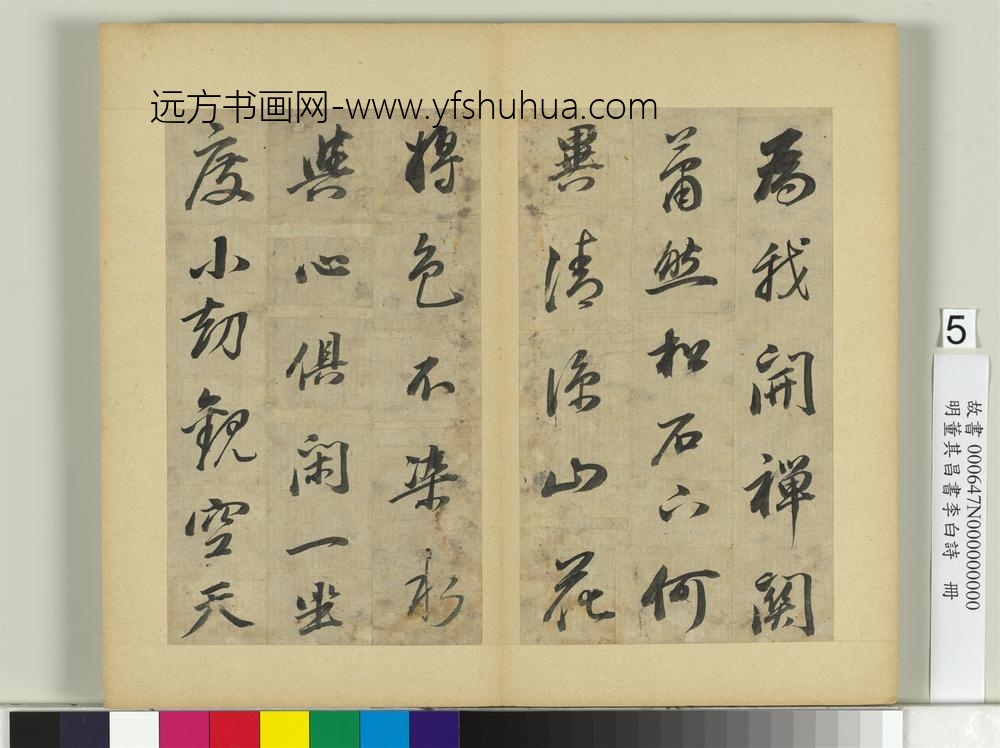 远方书画网-www.yfshuhua.com
為我開禪關
蕭然松石下何
異清涼山花
將色不染水
與心俱閑一坐
度小劫觀空天
5
故書 000647N000000000
明董其昌書李白詩 冊